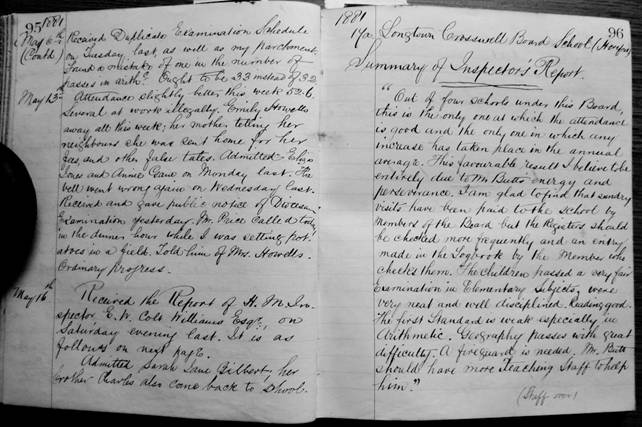 95
1881
May 6th Received Duplicate Examination Schedule
(Contd.) on Tuesday last as well as my parchment.
Found a mistake of one in the number of
passes in arith? Ought to be 33 instead of 32
May 13th Attendance slightly better this week 52.6
Several at work illegally. Emily Howells
away all this week; her mother telling her
neighbours she was sent home for her
fees, and other false tales. Admitted Eliza
Jones and Annie Crane on Monday last. The
bell went wrong again on Wednesday last.
Received and gave public notice of Diocesan
Examination yesterday. Mr. Price called today
in the dinner hour while I was setting pot-
atoes in a field. Told him of Mrs. Howells.
Ordinary Progress.
May 16th Received the Report of H. M. In-
spector E. W. Colt Williams Esqr., on
Saturday evening last. It is as
follows on next page.
Admitted Sarah Jane Gilbert, her
brother Charles also come back to school.
1881
96
Longtown Crosswell Board School
Summary of Inspector's Report.
"Out of four schools under this Board,
this is the only one at which the attendance
is good and the only one in which any
increase has taken place in the annual
average. This favourable result I believe to be
entirely due to Mr Butts energy and
perseverance. I am glad to find that sundry
visits have been paid to the school by
Members of the Board but the Registers should
be checked more frequently and an entry
made in the Logbook by the Member who
checks them. The children passed a very fair
Examination in Elementary Subjects, were
very neat and well disciplined. Reading good.
The first Standard is weak especially in
Arithmetic. Geography passes with great
difficulty. A fireguard is needed. Mr. Butts
should have more teaching Staff to help
him."
(Staff over)